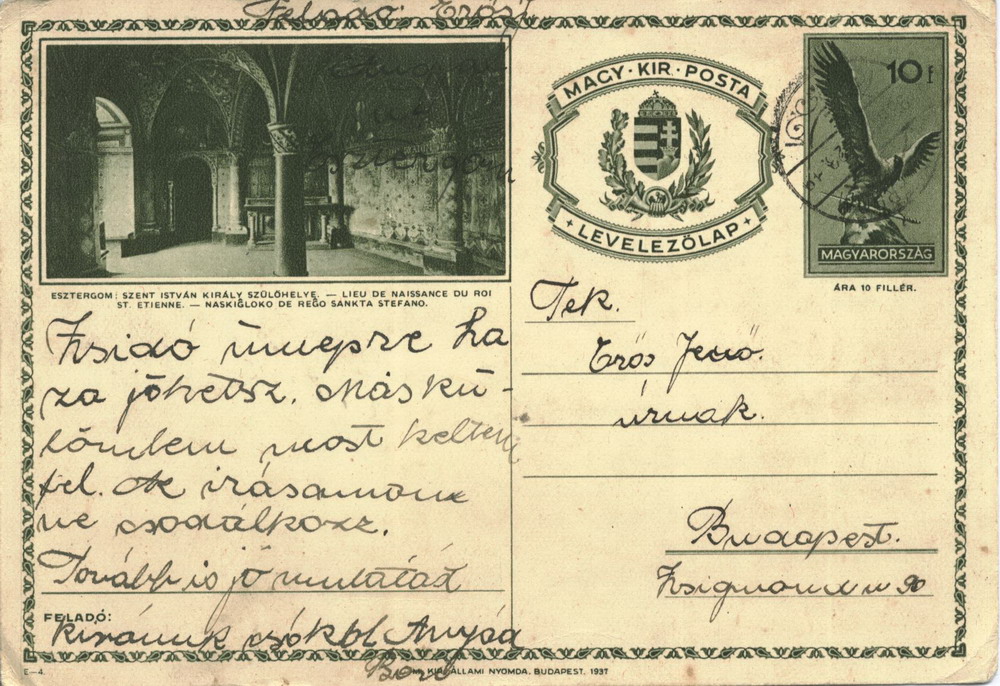 Feladó Erős
Esztergom
MAGY·KIR·POSTA
LEVELEZŐLAP
10f
MAGYARORSZÁG
ÁRA 10 FILLÉR.
ESZTERGOM: SZENT ISTVÁN KIRÁLY SZÜLŐHELYE. — LIEU DE NAISSANCE DU ROI
ST. ETIENNE. — NASKIĜLOKO DE REĜO SANKTA STEFANO.
Zsidó ünnepre ha
za jöhetsz. Máskü-
lömben most keltem
fel. Az irásamon
ne csodálkozz.
További jó mulatást
FELADÓ:
kivánunk csókol Anyád
Tek.
Erős Jenő.
úrnak.
Budapest.
Zsigmond u 90
E—4.
M. KIR. ÁLLAMI NYOMDA, BUDAPEST, 1937